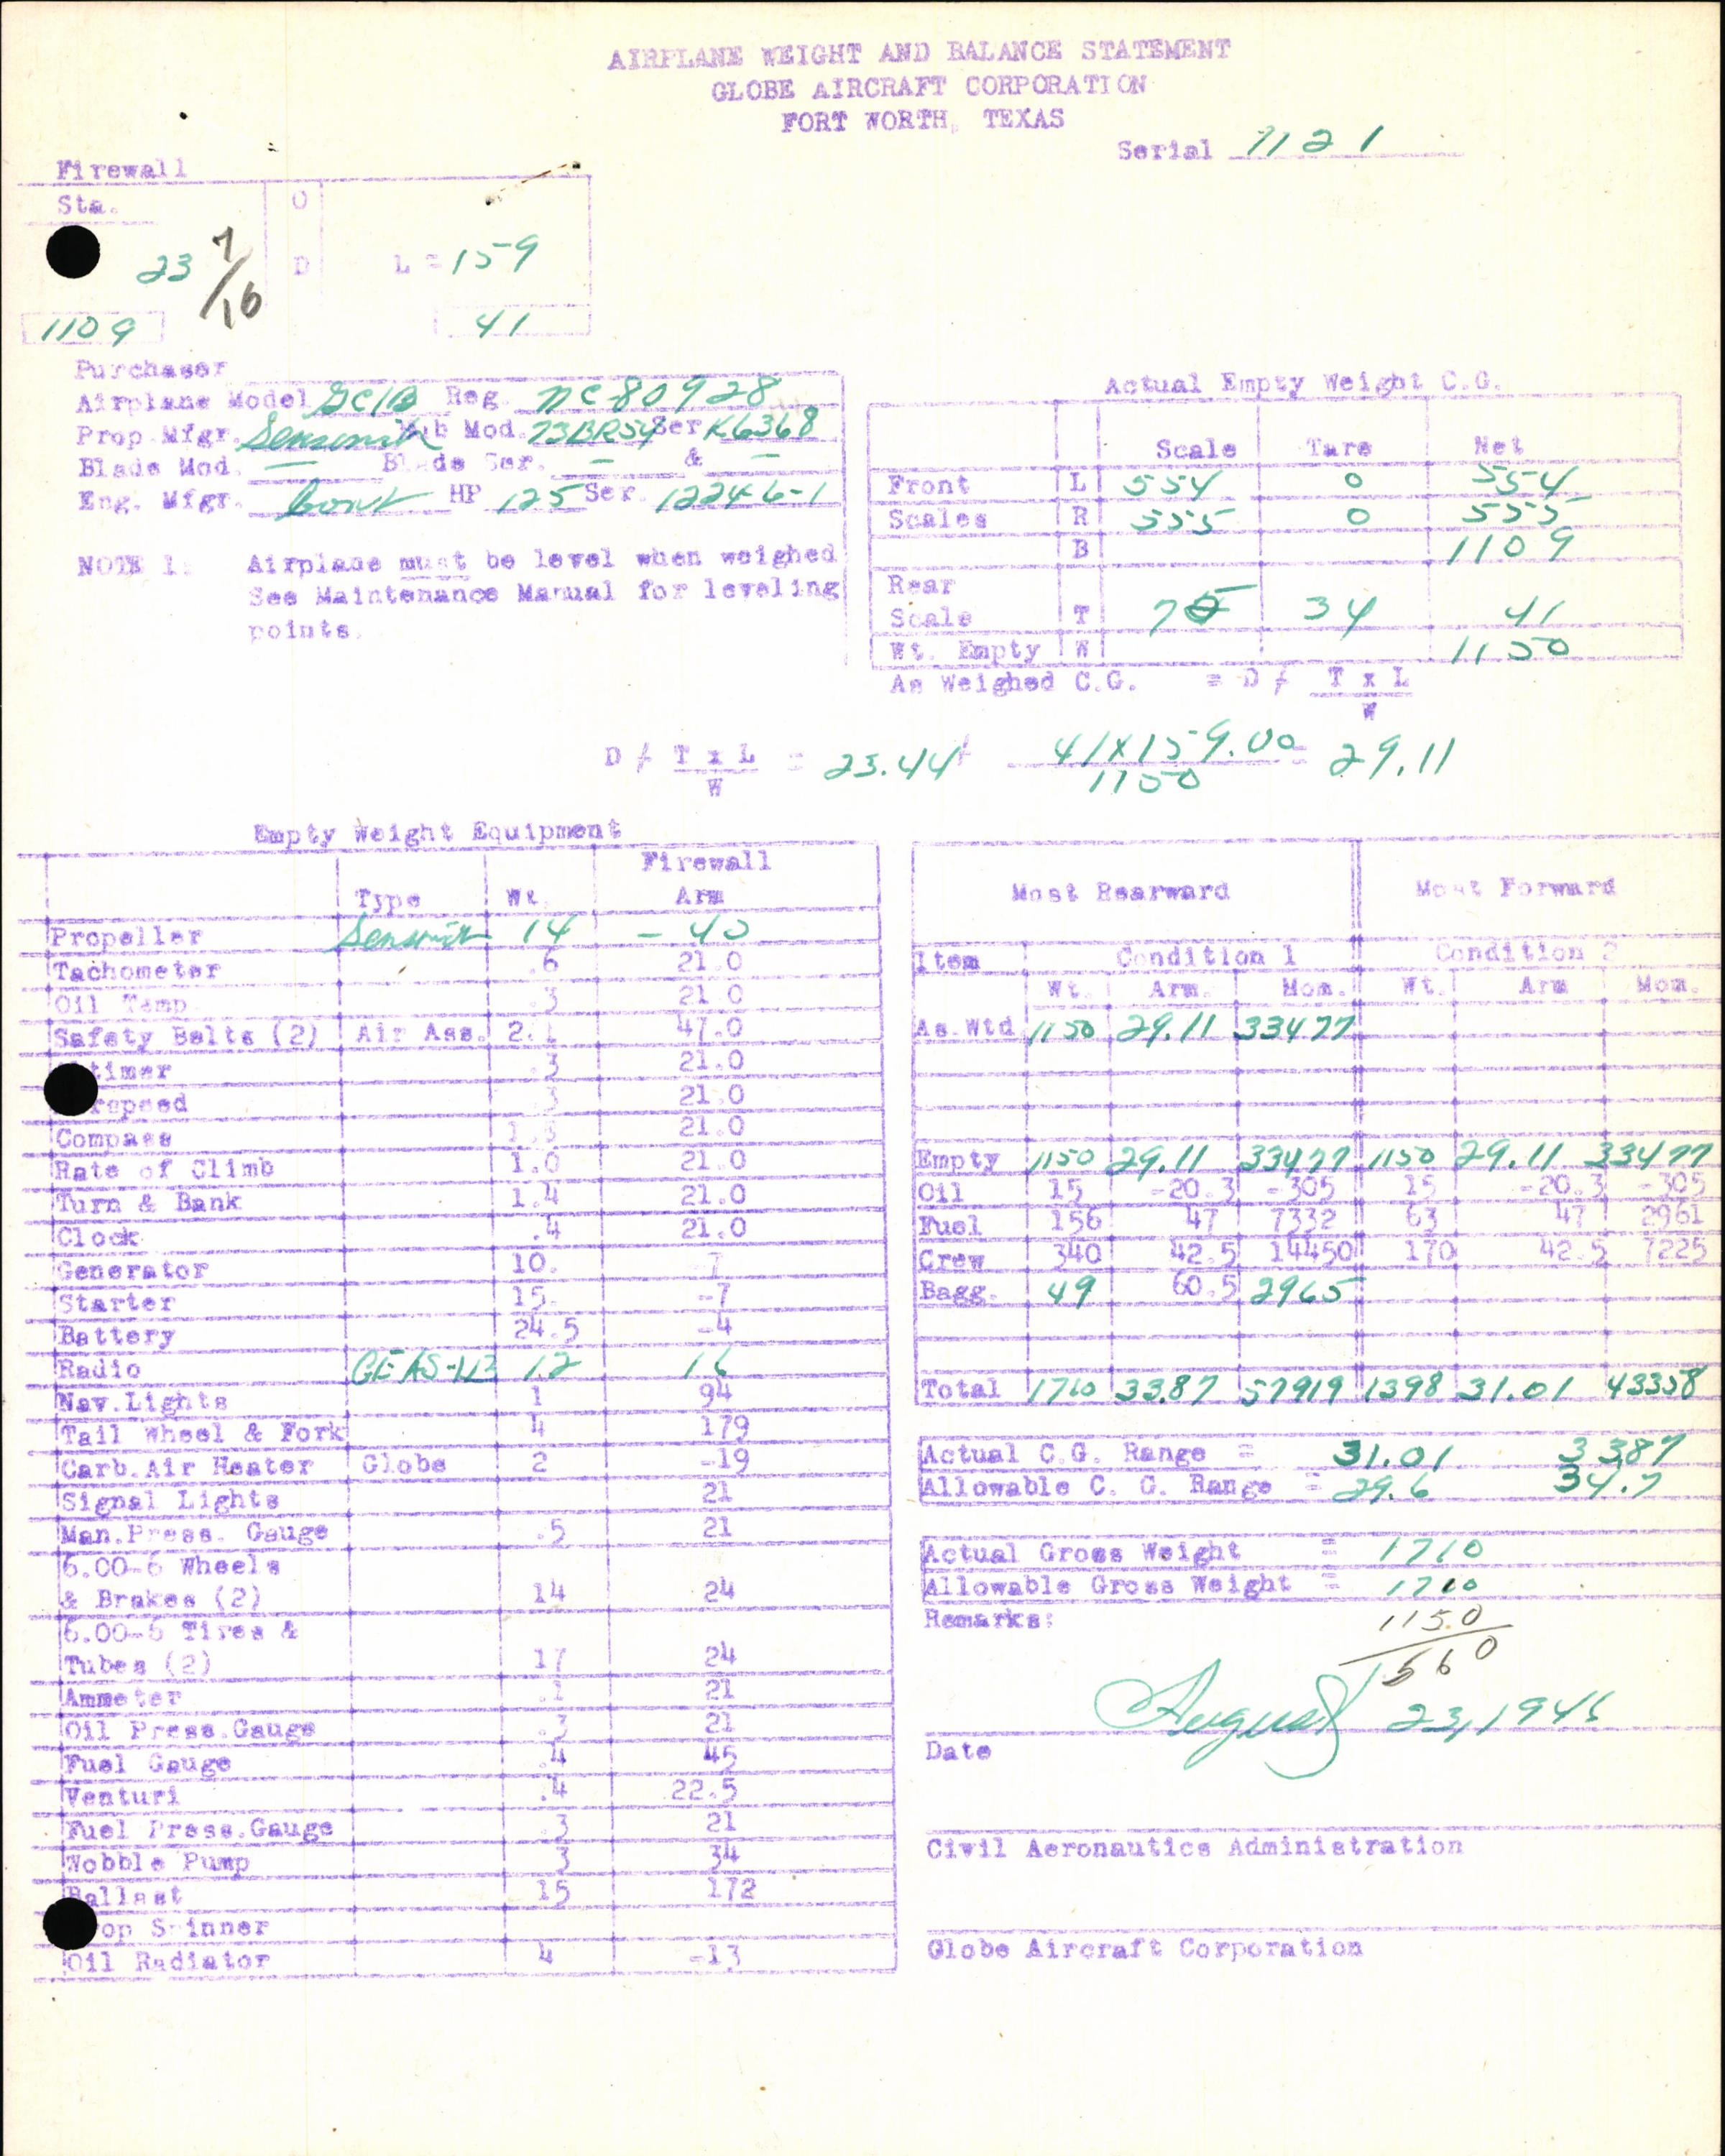 AIRPLANE WEIGHT AND BALANCE STATEMENT
GLOBE AIRCRAFT CORPORATION
FORT WORTH, TEXAS
Serial 1121
Firewall
Sta. O
23 7/16 D L = 159
1109 41
Purchaser
Airplane Model GC1B Reg. NC-80928
Prop Mfgr. Sensenich Hub Mod. 73BR54 Ser K6368
Blade Mod. — Blade Ser. — & —
Eng. Mfgr. Cont HP 125 Ser. 12246-1
NOTE 1: Airplane must be level when weighed
See Maintenance Manual for leveling
points.
Actual Empty Weight C.G.
Scale Tare Net
Front L 554 0 554
Scales R 555 0 555
B 1109
Rear
Scale T 75 34 41
Wt. Empty W 1150
As Weighed C.G. = D / T x L
W
D / T x L = 23.44 + 41X159.00 = 29.11
W 1150
Empty Weight Equipment
Firewall
Type Wt. Arm
Propeller Sensenich 14 -40
Tachometer .6 21.0
Oil Temp .3 21.0
Safety Belts (2) Air Ass. 2.1 47.0
timer .3 21.0
rspeed .3 21.0
Compass 21.0
Rate of Climb 1.0 21.0
Turn & Bank 1.4 21.0
Clock .4 21.0
Generator 10. -7
Starter 15. -7
Battery 24.5 -4
Radio GE AS-1B 12 16
Nav.Lights 1 94
Tail Wheel & Fork 4 179
Carb.Air Heater Globe 2 -19
Signal Lights 21
Man.Press. Gauge .5 21
6.00-6 Wheels
& Brakes (2) 14 24
6.00-6 Tires &
Tubes (2) 17 24
Ammeter .1 21
Oil Press.Gauge .3 21
Fuel Gauge .4 45
Venturi .4 22.5
Fuel Press.Gauge .3 21
Wobble Pump 3 34
Ballast 15 172
rop Spinner
Oil Radiator 4 -13
Most Rearward Most Forward
Item Condition 1 Condition 2
Wt. Arm. Mom. Wt. Arm Mom.
As Wtd 1150 29.11 33477
Empty 1150 29.11 33477 1150 29.11 33477
Oil 15 -20.3 -305 15 -20.3 -305
Fuel 156 47 7332 63 47 2961
Crew 340 42.5 14450 170 42.5 7225
Bagg. 49 60.5 2965
Total 1710 33.87 57919 1398 31.01 43358
Actual C.G. Range = 31.01 33.87
Allowable C. G. Range = 29.6 34.7
Actual Gross Weight = 1710
Allowable Gross Weight = 1710
Remarks: 1150
560
August 23, 1946
Date
Civil Aeronautics Administration
Globe Aircraft Corporation